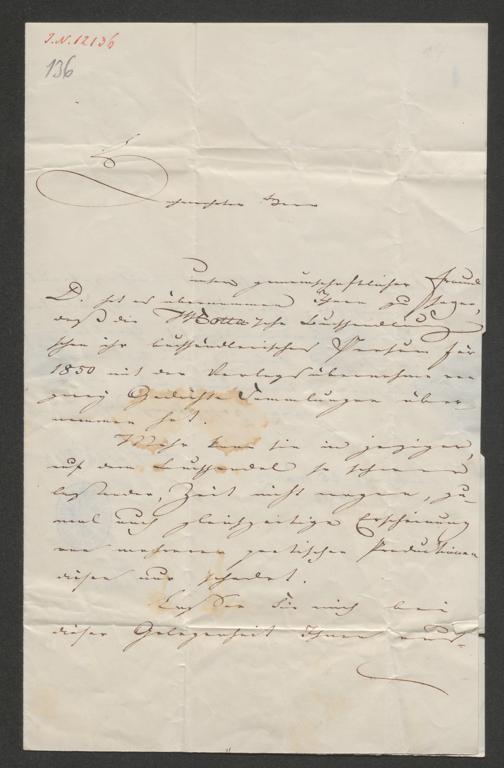 J.N. 12136
136
Geehrtester Herr
Unser gemeinschaftlicher Freund
D. hat es übernommen Ihnen zu sagen,
daß die Motta'sche Buchhandlung
schon ihr buchhändlerisches Pensum für
1850 mit der Verlagsübernahme von
zwey Gedichte Sammlungen über
nommen hat.
Mehr kann sie in jeziger,
auf dem Buchhandel so schwer
lastender, Zeit nicht wagen, zu-
mal auch gleichzeitige Erscheinung
von mehreren poetischen Produktionen
diesen nur schadet.
Lassen Sie mich bei
dieser Gelegenheit Ihnen